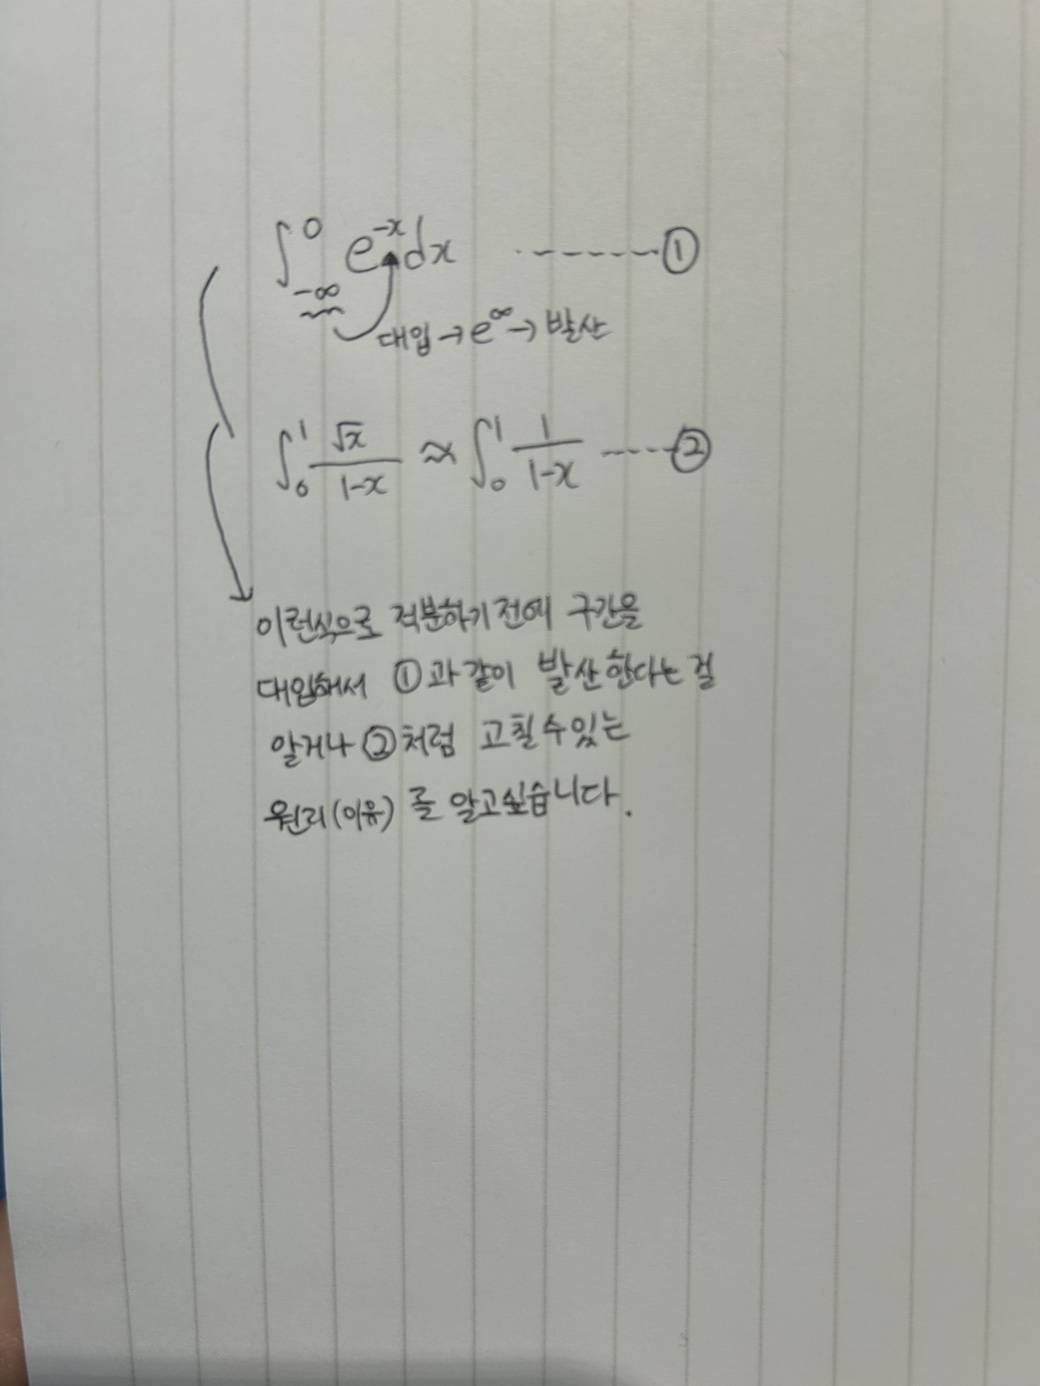 ∫_{-∞}^{0} e^{-x} dx ------- ①
대입 → e^∞ → 발산
∫_0^1 √x/(1-x) ≈ ∫_0^1 1/(1-x) ----- ②
이런식으로 적분하기 전에 구간을
대입해서 ①과 같이 발산한다는 걸
알거나 ②처럼 고칠 수 있는
원리(이유)를 알고싶습니다.